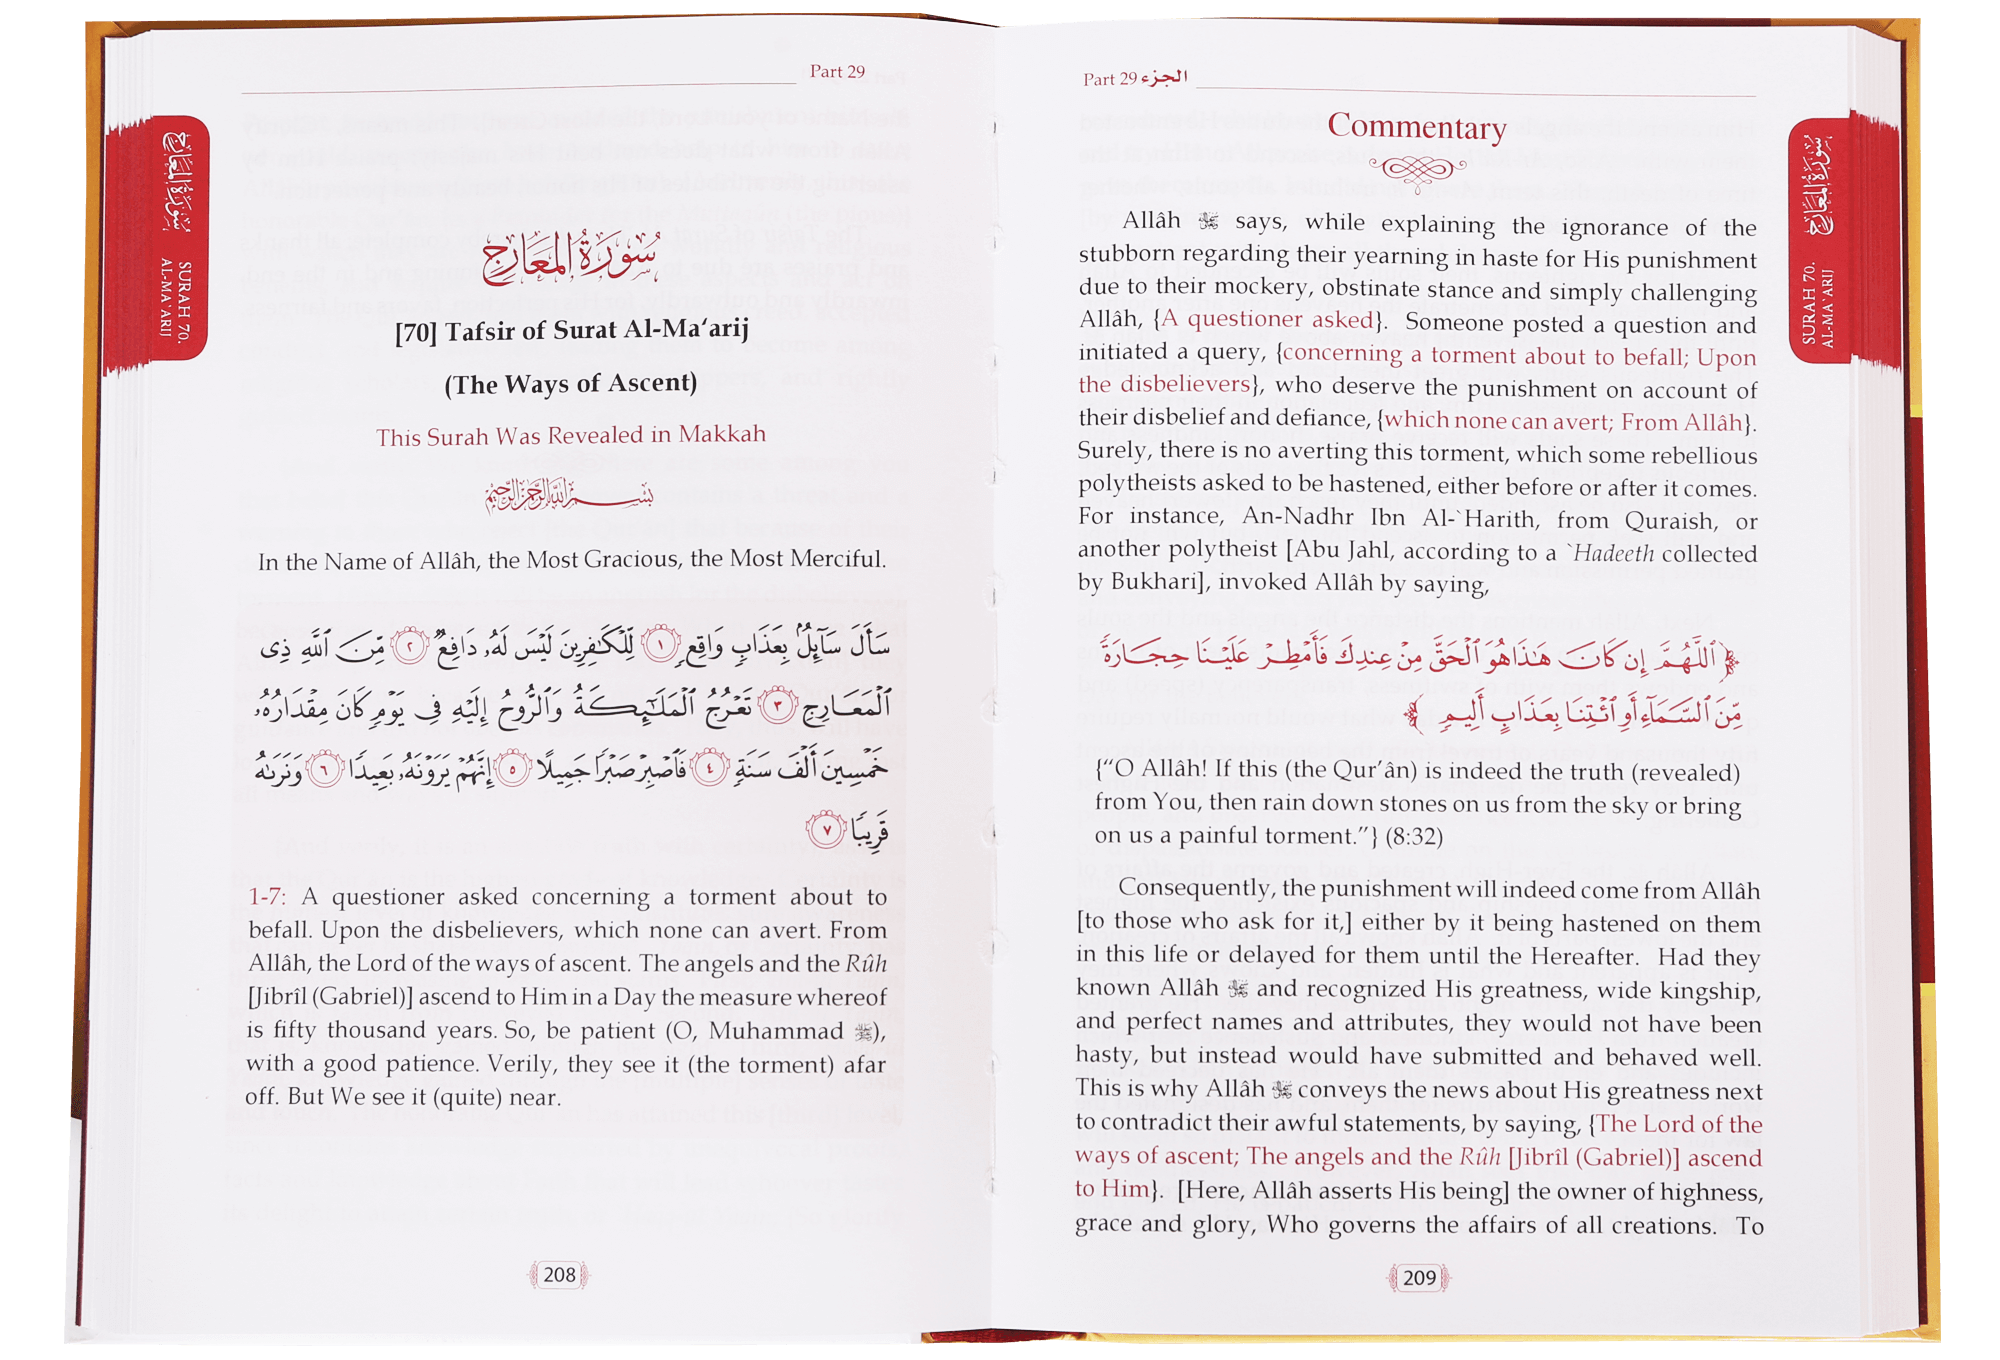 Part 29
سورة المعارج
SURAH 70.
AL-MA`ARIJ
سُورَةُ المَعَارِجِ
[70] Tafsir of Surat Al-Ma‘arij
(The Ways of Ascent)
This Surah Was Revealed in Makkah
بسم الله الرحمن الرحيم
In the Name of Allâh, the Most Gracious, the Most Merciful.
سَأَلَ سَآئِلٌۢ بِعَذَابٖ وَاقِعٖ ١ لِّلۡكَٰفِرِينَ لَيۡسَ لَهُۥ دَافِعٞ ٢ مِّنَ ٱللَّهِ ذِي
ٱلۡمَعَارِجِ ٣ تَعۡرُجُ ٱلۡمَلَٰٓئِكَةُ وَٱلرُّوحُ إِلَيۡهِ فِي يَوۡمٖ كَانَ مِقۡدَارُهُۥ
خَمۡسِينَ أَلۡفَ سَنَةٖ ٤ فَٱصۡبِرۡ صَبۡرٗا جَمِيلًا ٥ إِنَّهُمۡ يَرَوۡنَهُۥ بَعِيدٗا ٦ وَنَرَىٰهُ
قَرِيبٗا ٧
1-7: A questioner asked concerning a torment about to
befall. Upon the disbelievers, which none can avert. From
Allâh, the Lord of the ways of ascent. The angels and the Rûh
[Jibrîl (Gabriel)] ascend to Him in a Day the measure whereof
is fifty thousand years. So, be patient (O, Muhammad ﷺ),
with a good patience. Verily, they see it (the torment) afar
off. But We see it (quite) near.
208
Part 29 الجزء
سورة المعارج
SURAH 70.
AL-MA`ARIJ
Commentary
Allâh ﷻ says, while explaining the ignorance of the
stubborn regarding their yearning in haste for His punishment
due to their mockery, obstinate stance and simply challenging
Allâh, {A questioner asked}. Someone posted a question and
initiated a query, {concerning a torment about to befall; Upon
the disbelievers}, who deserve the punishment on account of
their disbelief and defiance, {which none can avert; From Allâh}.
Surely, there is no averting this torment, which some rebellious
polytheists asked to be hastened, either before or after it comes.
For instance, An-Nadhr Ibn Al-`Harith, from Quraish, or
another polytheist [Abu Jahl, according to a `Hadeeth collected
by Bukhari], invoked Allâh by saying,
﴿ ٱللَّهُمَّ إِن كَانَ هَٰذَا هُوَ ٱلۡحَقَّ مِنۡ عِندِكَ فَأَمۡطِرۡ عَلَيۡنَا حِجَارَةٗ
مِّنَ ٱلسَّمَآءِ أَوِ ٱئۡتِنَا بِعَذَابٍ أَلِيمٖ ﴾
{“O Allâh! If this (the Qur’ân) is indeed the truth (revealed)
from You, then rain down stones on us from the sky or bring
on us a painful torment.”} (8:32)
Consequently, the punishment will indeed come from Allâh
[to those who ask for it,] either by it being hastened on them
in this life or delayed for them until the Hereafter. Had they
known Allâh ﷻ and recognized His greatness, wide kingship,
and perfect names and attributes, they would not have been
hasty, but instead would have submitted and behaved well.
This is why Allâh ﷻ conveys the news about His greatness next
to contradict their awful statements, by saying, {The Lord of the
ways of ascent; The angels and the Rûh [Jibrîl (Gabriel)] ascend
to Him}. [Here, Allâh asserts His being] the owner of highness,
grace and glory, Who governs the affairs of all creations. To
209